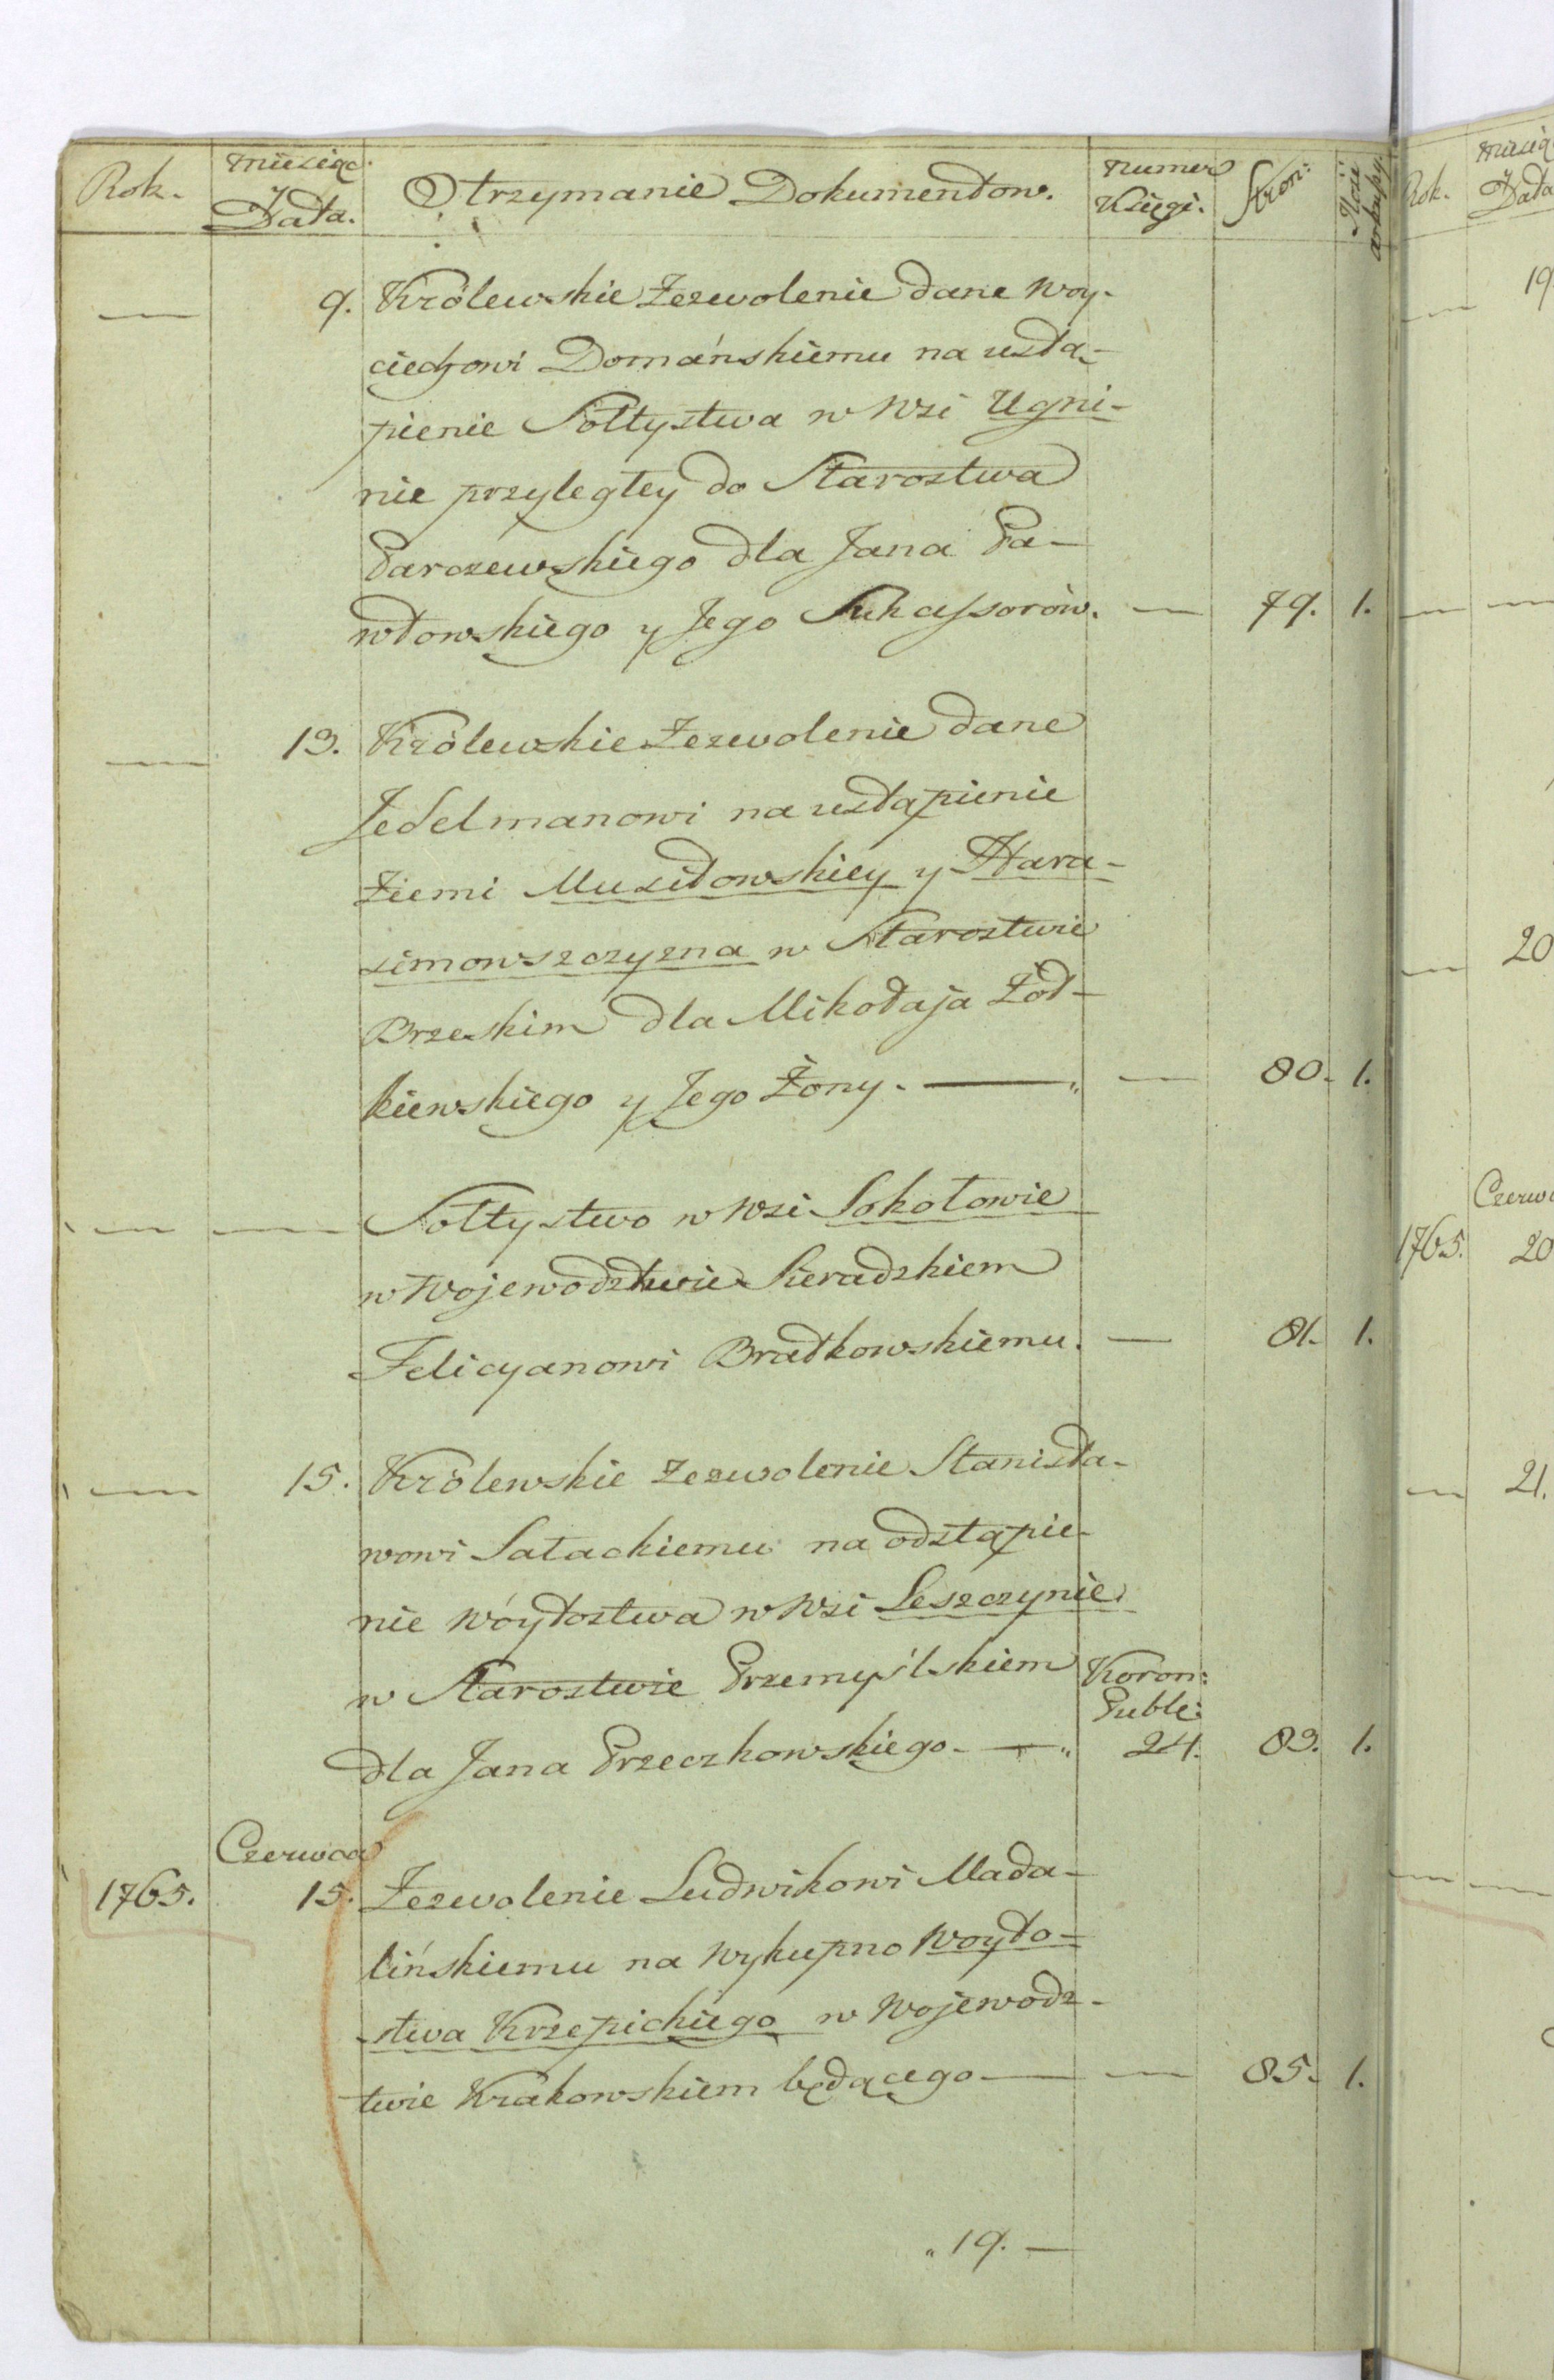 Rok. Miesiąc. Data. Otrzymanie Dokumentow. Numer Księgi. Stron: Ilość arkuszy
— 9. Królewskie Zezwolenie dane Woy-
ciechowi Domańskiemu na ustą-
pienie Sołtystwa w Wsi Ugni-
nie przyległey do Starostwa
Parczewskiego dla Jana Pa-
włowskiego y Jego Sukcessorów. — 79. 1.
— 13. Królewskie Zezwolenie dane
Jedelmanowi na ustąpienie
Ziemi Musiłowskiey y Hara-
simowszczyzna w Starostwie
Brzeskim dla Mikołaja Żół-
kiewskiego y Jego Żony. — — 80. 1.
— — Sołtystwo w Wsi Sokołowie
w Wojewodztwie Sieradzkiem
Felicyanowi Bratkowskiemu. — 81. 1.
— 15. Królewskie Zezwolenie Stanisła-
wowi Sałackiemu na odstąpie-
nie Wóytostwa w Wsi Leszczynie
w Starostwie Przemyślskiem Koron:
Publ:
dla Jana Przeczkowskiego. — 24. 83. 1.
Czerwca
1765. 15. Zezwolenie Ludwikowi Mada-
lińskiemu na wykupno Woyto-
stwa Krzepickiego w Wojewodz-
twie Krakowskiem będącego — — 85. 1.
„19. —
Rok. Miesią Data
19
20
Czerw
1765. 20
21.